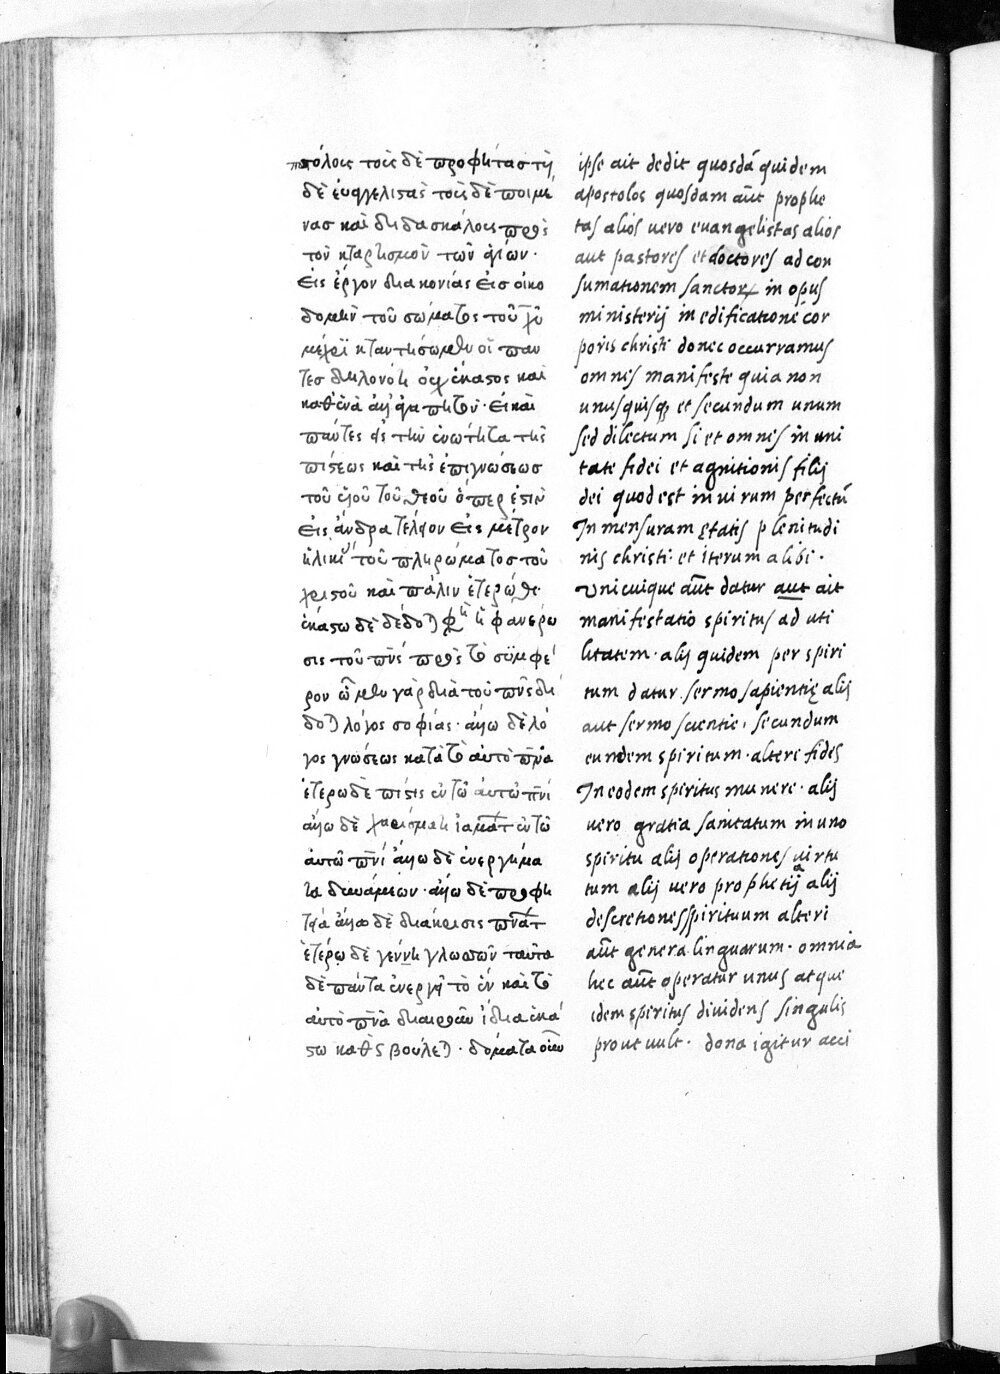 πόλοις τοῖς δὲ προφήτας τοῖς
δὲ ἐυαγγελιστὰς τοὶς δὲ ποιμέ
νας καὶ διδασκάλοις πρὸς
τὸν κταρτισμὸν τῶν ἁγίων·
εἰς ἔργον διακονίας εἰς οἰκο
δομὴν τοῦ σώματος τοῦ χυ
μέχρι κταντήσωμεν οἱ παν
τες δηλονότι ἕκαστος καὶ
καθένα ἀγαπητὸν· εἰ καὶ
πάντες εἰς τὴν ἑνώτητα τῆς
πίστεως καὶ τῆς ἐπιγνώσεως
τοῦ υἱοῦ τοῦ θεοῦ ὅπερ ἐστὶν
εἰς ἄνδρα τέλειον εἰς μέτρον
ἡλικί τοῦ πληρώματος τοῦ
χριστοῦ καὶ πάλιν ἑτέρωθι·
ἑκάστω δὲ δέδοται ἡ φανέρω
σις τοῦ πνς πρὸς τὸ σύμφέ
ρον ὧ μὲν γὰρ διὰ τοῦ πνς δί
δοται λόγος σοφίας· ἄλλω δὲ λό
γος γνώσεως κατὰ τὸ αὐτὸ πνα
ἑτέρω δὲ πίστις ἐν τῶ αὐτῶ πνι
ἄλλω δὲ χαρίσματι ἰαμάτ ἐν τῶ
ἀυτῶ πνι ἄλλω δὲ ἐνεργήμα
τα δυνάμεων· ἄλλω δὲ προφη
τεία ἄλλω δὲ διάκρισις πνάτ
ἑτέρω δὲ γέννη γλωσσῶν ταῦτα
δὲ πάντα ἐνεργῆ τὸ ἐν καὶ τὸ
αὐτὸ πνα διαιροῦν ἰδία ἑκά
στω καθὼς βούλεται· δόματα
ipse ait dedit quosdā quidem
apostolos quosdam aūt prophe
tas alios uero euangelistas alios
aut pastores et doctores ad con
sumationem sanctorꝝ in opus
ministerij in edificationē cor
poris christi donec occurramus
omnes manifeste quia non
unusquisqꝫ et secundum unum
sed dilectum si et omnes in uni
tate fidei et agnitionis filij
dei quod est in uirum perfectū
In mensuram ętatis plenitudi
nis christi· et iterum alibi·
Vnicuique aūt datur aut ait
manifestatio spiritus ad uti
litatem· alij quidem per spiri
tum datur sermo sapientię alij
aut sermo scientie, secundum
eundem spiritum· alteri fides
In eodem spiritus munere· alij
uero gratia sanitatum in uno
spiritu alij operationes uirtu
tum alij uero prophetia alij
descretiones spirituum alteri
aūt genera linguarum· omnia
hec aūt operatur unus atque
idem spiritus dividens singulis
prout uult· dona igitur acci